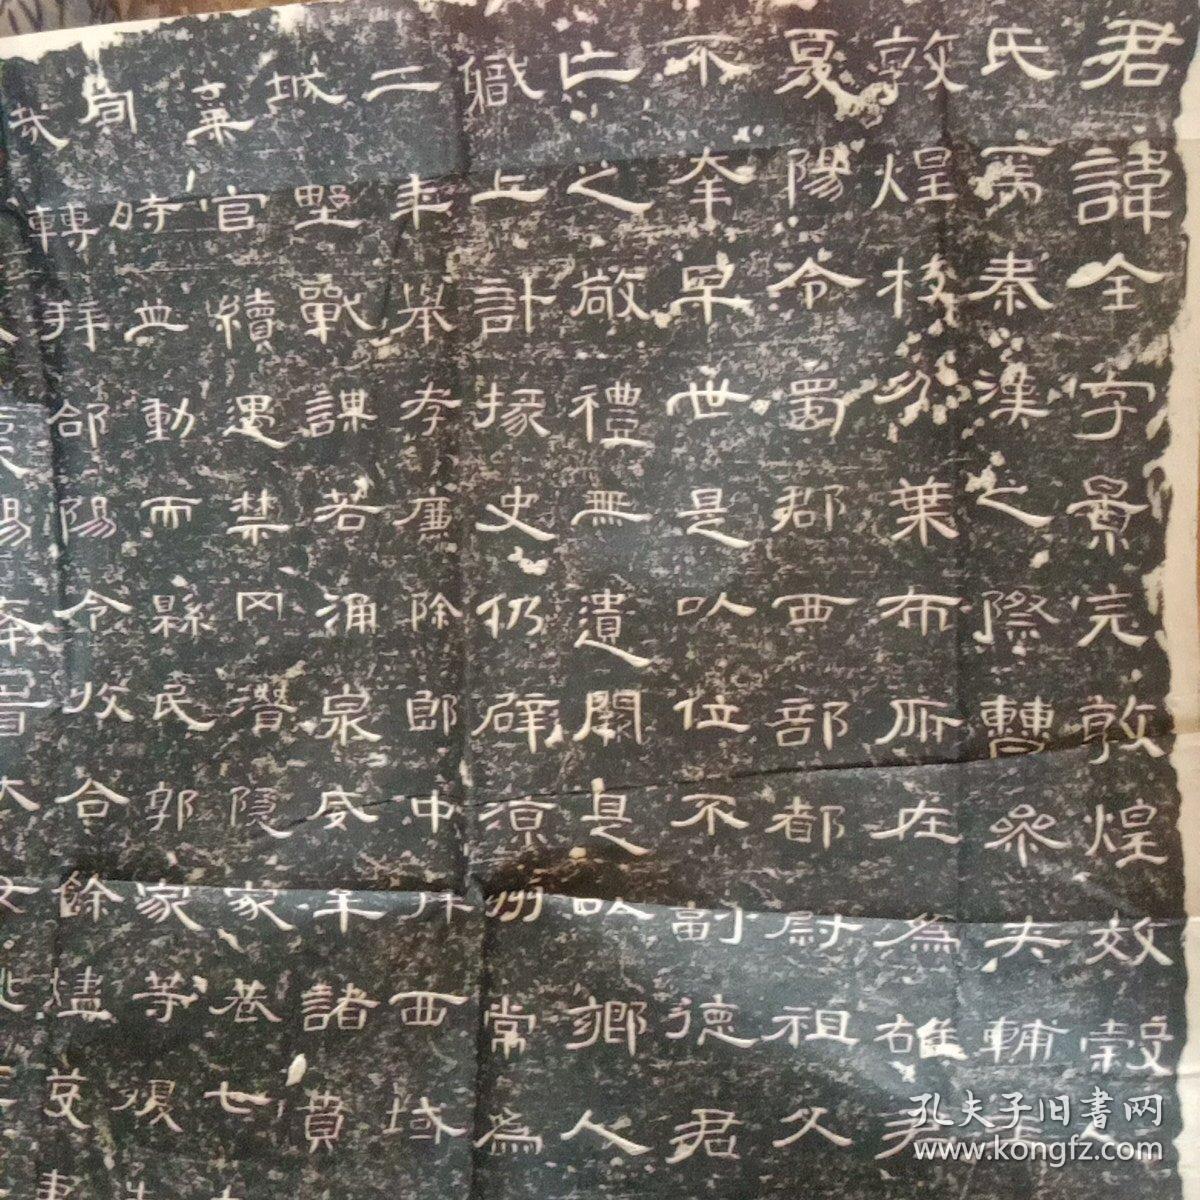 君諱全字景完敦煌效穀人
氏焉秦漢之際曹參夾輔王
敦煌枝分葉布所在為雄君
夏陽令蜀郡西部都尉祖父
不幸早世是以位不副德君
亡之敬禮無遺闕是以鄉人
職上計掾史仍辟涼州常為
二年舉孝廉除郎中拜西域
城野戰謀若涌泉威牟諸賁
棄官續遇禁冈潛隱家巷七
同時並動而縣民郭家等復
哉轉拜郃陽令收合餘燼芟
孔夫子旧书网
www.kongfz.com